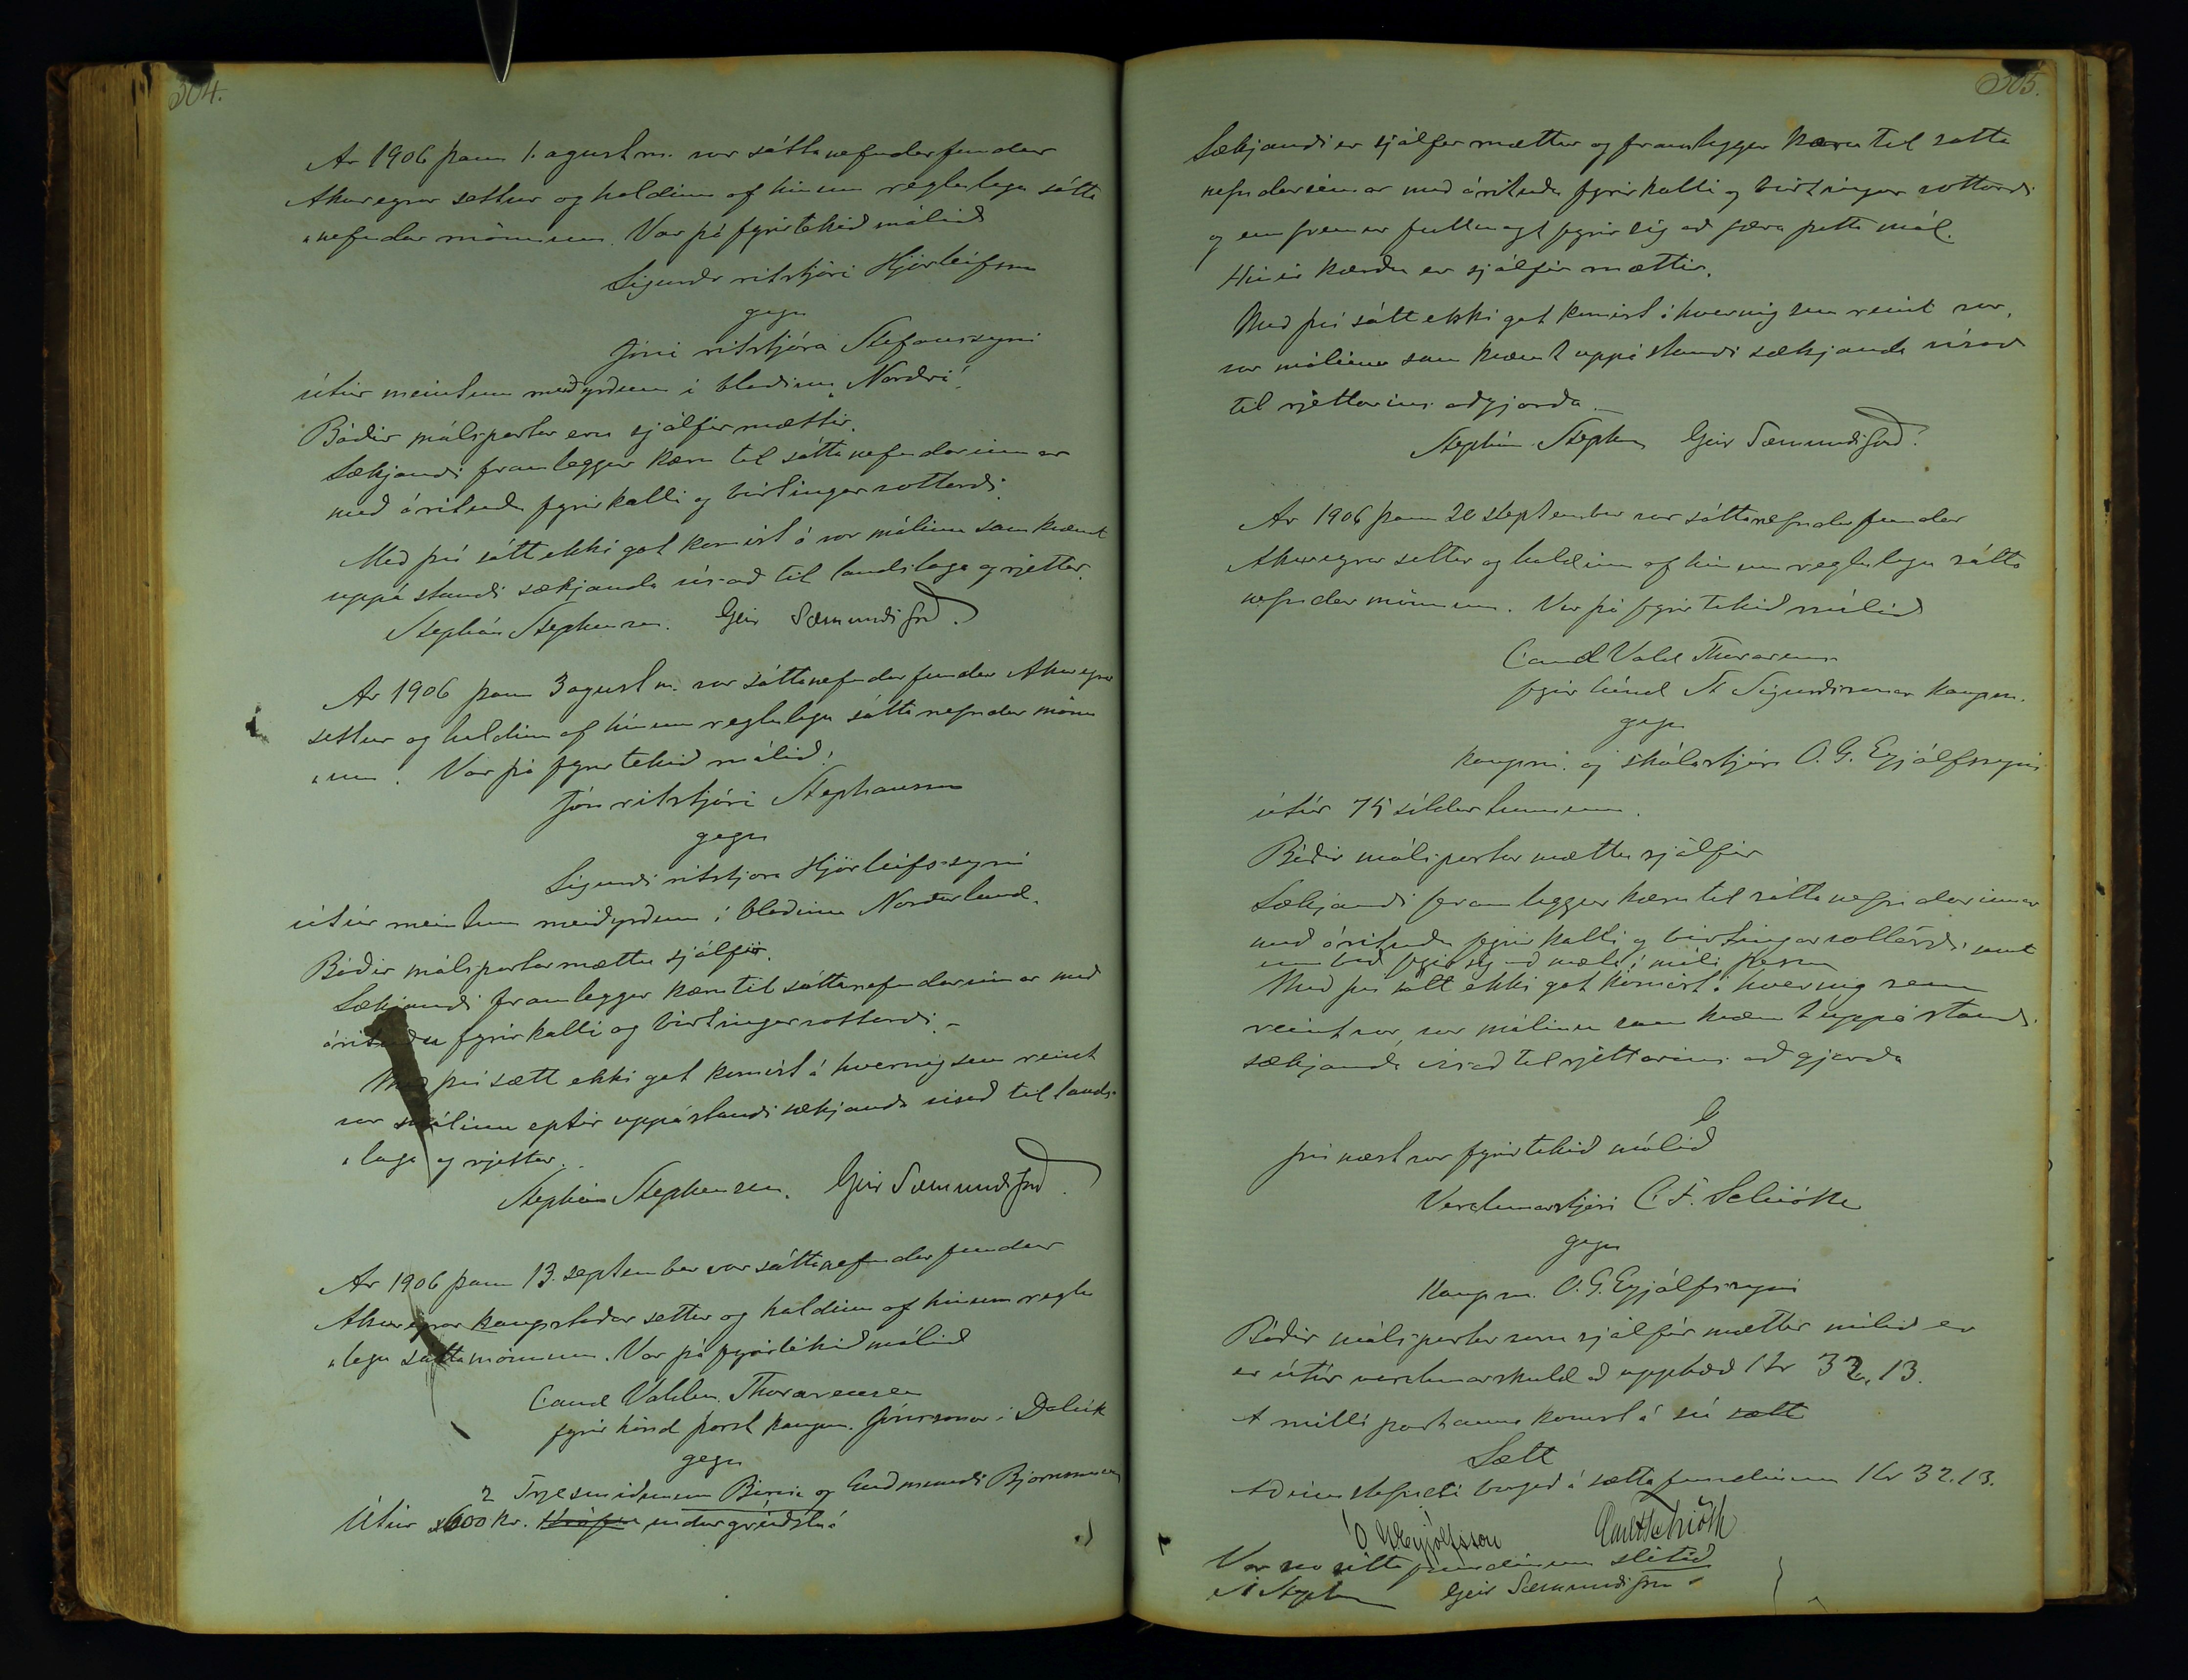 304.
Ar 1906 þann 1. agust m. var sáttanefndarfundur
Akureyrar settur og haldinn af hinum reglulegu sátta
"nefndar mönnum. Var þá fyrirtekið málið
Sigurður ritstjóri Hjörleifsson
gegn
Jóni ritstjóra Stefanssyni
útúr meintum meiðyrðum í blaðinu „Norðri“.
Báðir málspartar eru sjálfir mættir.
Sækjandi framleggur kæru til sáttanefndarinnar
með árituðu fyrirkalli og birtingarvottorði.
Með því sátt ekki gat komist á var málinu samkvæmt
uppástandi sækjanda vísað til landslaga og rjettar.
Stephán Stephensen. Geir Sæmundsson.
Ar 1906 þann 3 agust m. var sáttanefndarfundur Akureyrar
settur og haldinn af hinum reglulegu sáttanefndar mönn
"um. Var þá fyrirtekið málið:
Jón ritstjóri Stephansson
gegn
Sigurði ritstjora Hjörleifssyni
útúr meintum meiðyrðum í blaðinu Norðurland.
Báðir málspartar mættu sjálfir.
Sækjandi framleggur kæru til sáttanefndarinnar með
árituðu fyrirkalli og birtingarvottorði. –
Með því sætt ekki gat komist á hvernig sem reint
var málinu eptir uppástandi sækjanda vísað til lands-
"laga og rjettar.
Stephán Stephensen. Geir Sæmundsson.
Ar 1906 þann 13. september var sáttanefndarfundur
Akureyrar kaupstaðar settur og haldinn af hinum reglu
"legu sáttamönnum. Var þá fyrirtekið málið
Cand Valdim. Thorarensen
fyrir hönd þorst kaupm. Jónssonar í Dalvík
gegn
2 Trjesmiðunum Birni og Guðmundi Bjornssonum
Útúr 600 Kr.
305.
Sækjandi er sjálfur mættur og framleggur kæru til satta
nefndarinnar með árituðu fyrirkalli og birtingar vottorði
og enn fremur fullmagt fyrir sig að færa þetta mál.
Hinir kærðu er sjálfir mættir.
Með því sátt ekki gat komist á hvernig sem reint var,
var málinu samkvæmt uppástandi sækjanda vísað
til rjettarins aðgjorða –
Stephán Stephen Geir Sæmundsson.
Ar 1906 þann 20 september var sáttanefndarfundur
Akureyrar settur og haldinn af hinum reglulegu sátta
nefndar mönnum. Var þá fyrirtekið málið
Cand Vald Thorarensen
fyrir hönd St Sigurðssonar kaupm.
gegn
kaupm. og skólastjóra O. G. Eyjólfssyni
útúr 75 síldartunnum.
Báðir málspartar mættu sjálfir
Sækjandi framleggur kæru til sáttanefndarinnar
með árituðu fyrirkalli og birtingarvottorði
Með því sátt ekki gat komist á hvernig sem
reint var, var málinu samkvæmt uppástandi
sækjanda vísað til rjettarins aðgjorða
því næst var fyrirtekið málið
Verslunarstjóri C. F. Schiöth
gegn
Kaupm. O. G. Eyjólfssyni
Báðir málspartar voru sjálfir mættir málið er
er útúr verslunarskuld að upphæð Kr 32,13.
A milli partanna komst á sú sætt
Sætt
Að innstefndi borgað á sættafundinum Kr 32.13.
Ó. G. Eyjólfsson Carl F Schiöth
Var svo sáttafundinum slitið
St Stephen Geir Sæmundsson